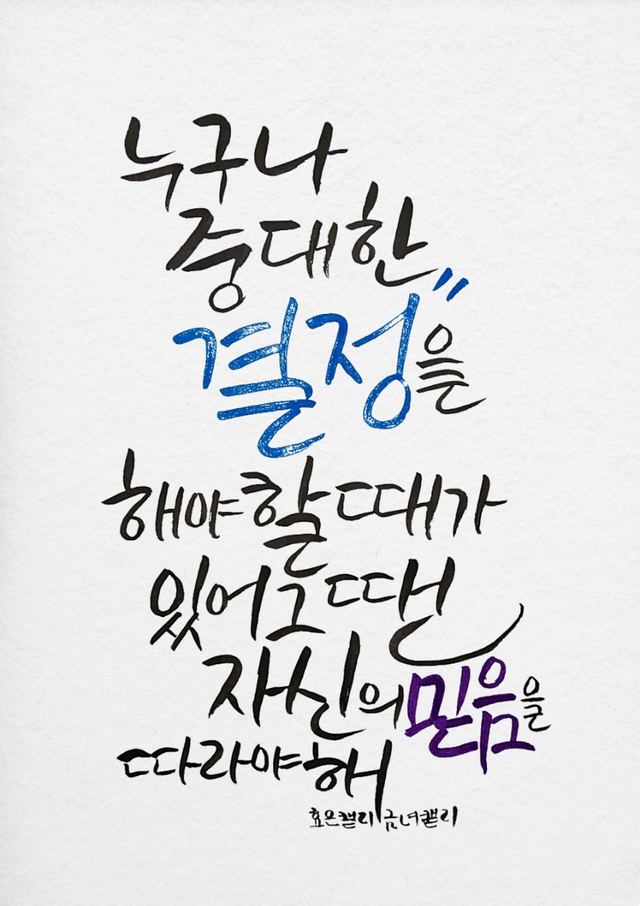 누구나
중대한
결정을
해야할때가
있어그땐
자신의믿음을
따라야해
효은캘리금녀캘리